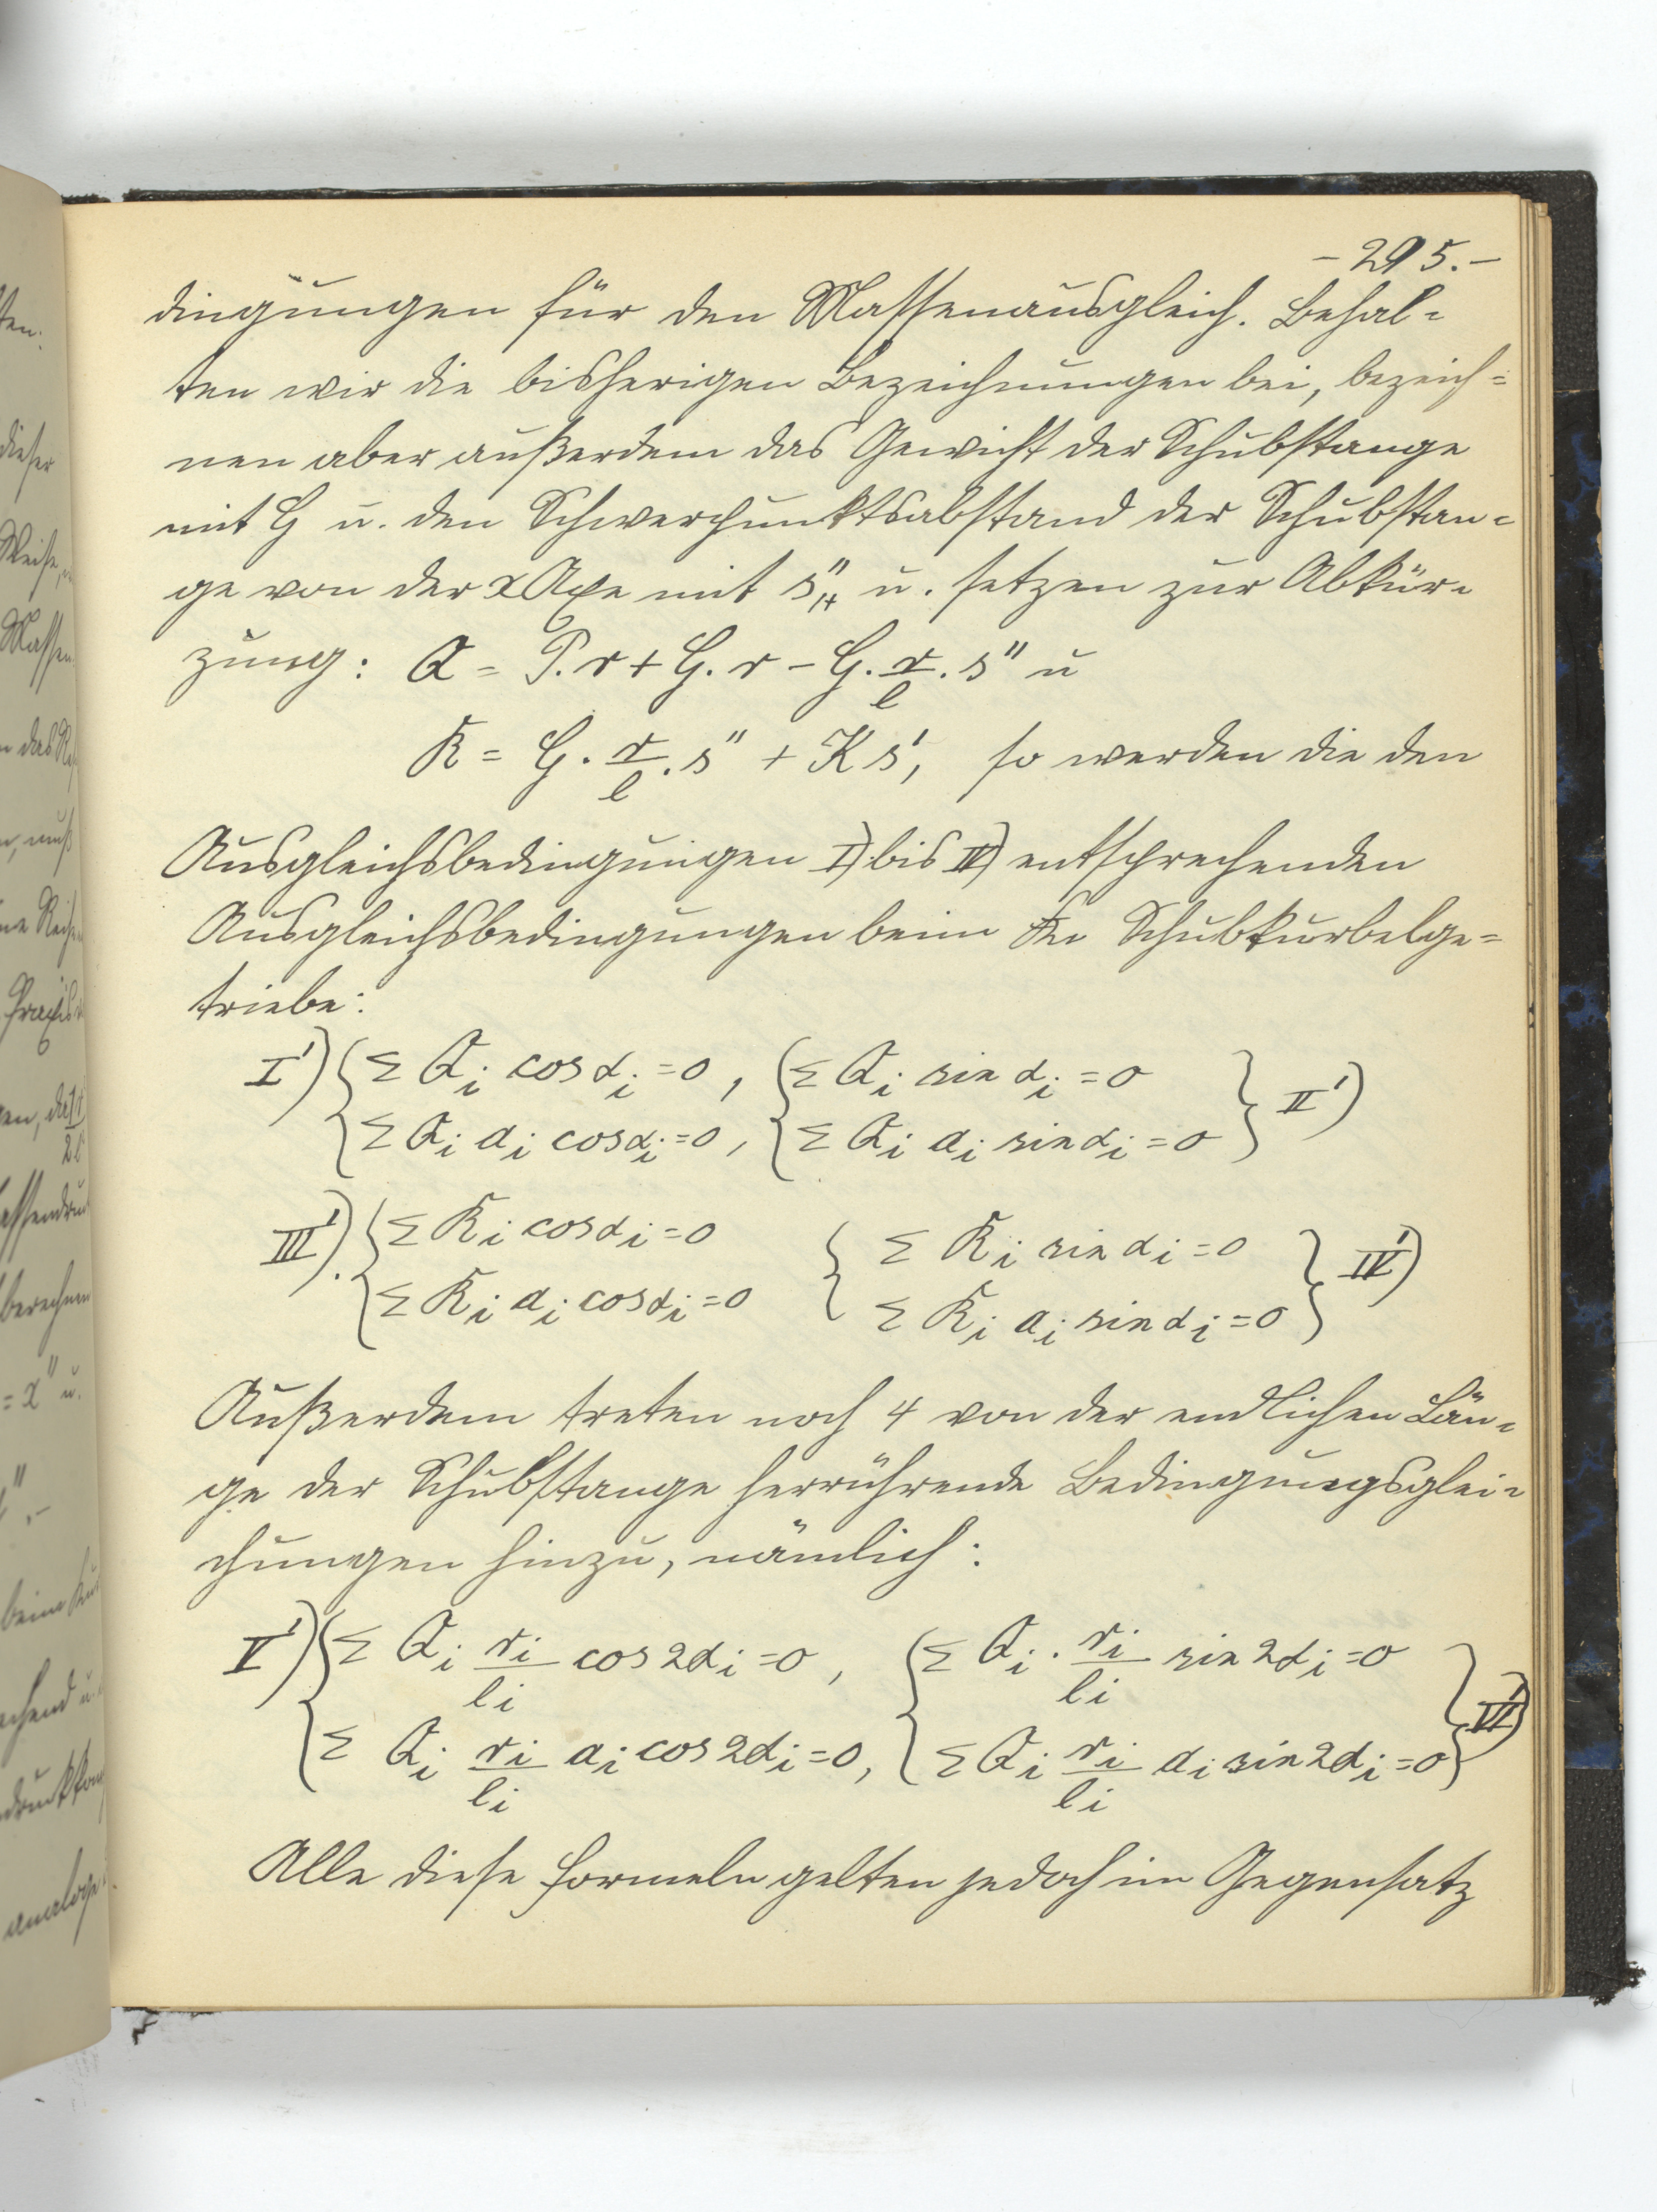 - 295. -
dingungen für den Massenausgleich. Behal=
ten wir die bisherigen Bezeichnungen bei, bezeich=
nen aber außerdem das Gewicht der Schubstange
mit G u. den Schwerpunktsabstand der Schubstan=
ge von der x Axe mit s" u. setzen zur Abkür=
zung: Q = P. r + G. r - G. r/l . s" u
R = G . r/l . s" + K s', so werden die den
Ausgleichsbedingungen I) bis IV) entsprechenden
Ausgleichsbedingungen beim Schubkurbelge=
triebe:
I') { Σ Qi cos αi = 0 , { Σ Qi sin αi = 0 } II')
{ Σ Qi ai cos αi = 0 , { Σ Qi ai sin αi = 0 }
III'). { Σ Ri cos αi = 0 { Σ Ri sin αi = 0 } IV')
{ Σ Ri ai cos αi = 0 { Σ Ri ai sin αi = 0 }
Außerdem treten noch 4 von der endlichen Län=
ge der Schubstange herrührende Bedingungsglei=
chungen hinzu, nämlich:
V') { Σ Qi ri/li cos 2αi = 0 , { Σ Qi . ri/li sin 2αi = 0 } VI')
{ Σ Qi ri/li ai cos 2αi = 0 , { Σ Qi ri/li ai sin 2αi = 0 }
Alle diese Formeln gelten jedoch im Gegensatz